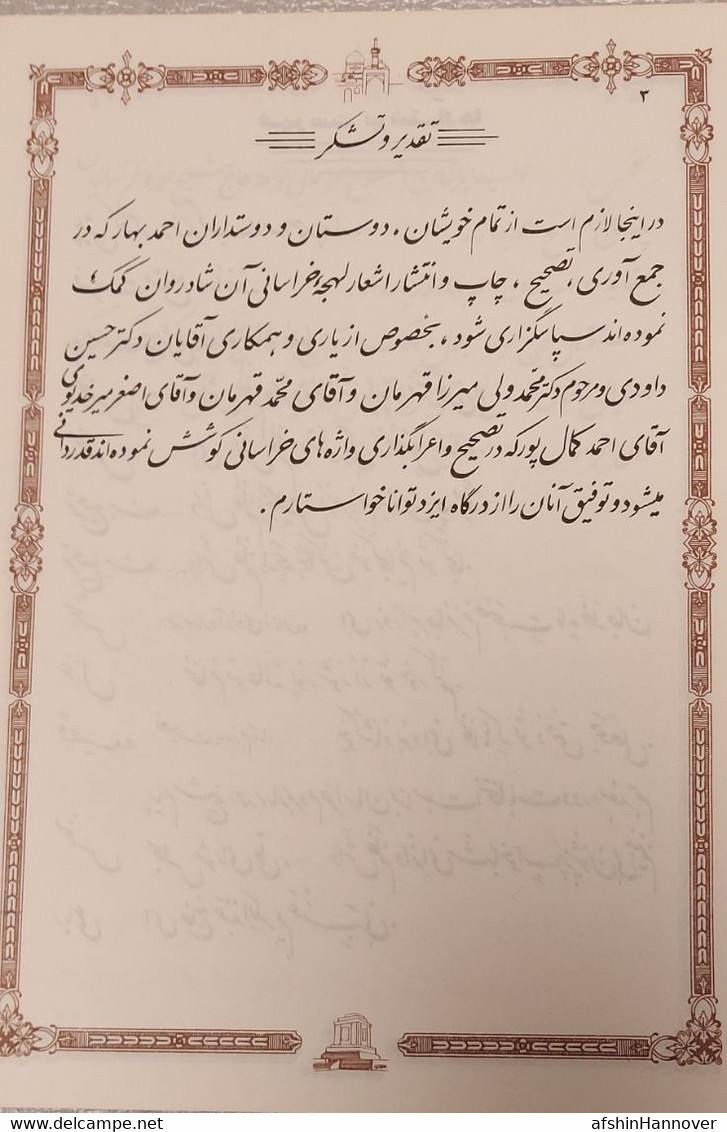 ۳
تقدیر و تشکر
در اینجا لازم است از تمام خویشان ، دوستان و دوستداران احمد بهار که در
جمع آوری ، تصحیح ، چاپ و انتشار اشعار لهجۀ خراسانی آن شادروان کمک
نموده اند سپاسگزاری شود ، بخصوص از یاری و همکاری آقایان دکتر حسین
داودی و مرحوم دکتر محمد ولی میرزا قهرمان و آقای محمّد قهرمان و آقای اصغر میرخدیوی
آقای احمد کمال پور که در تصحیح و اعرابگذاری واژه های خراسانی کوشش نموده اند قدردانی
میشود و توفیق آنان را از درگاه ایزد توانا خواستارم .
www.delcampe.net
afshinHannover